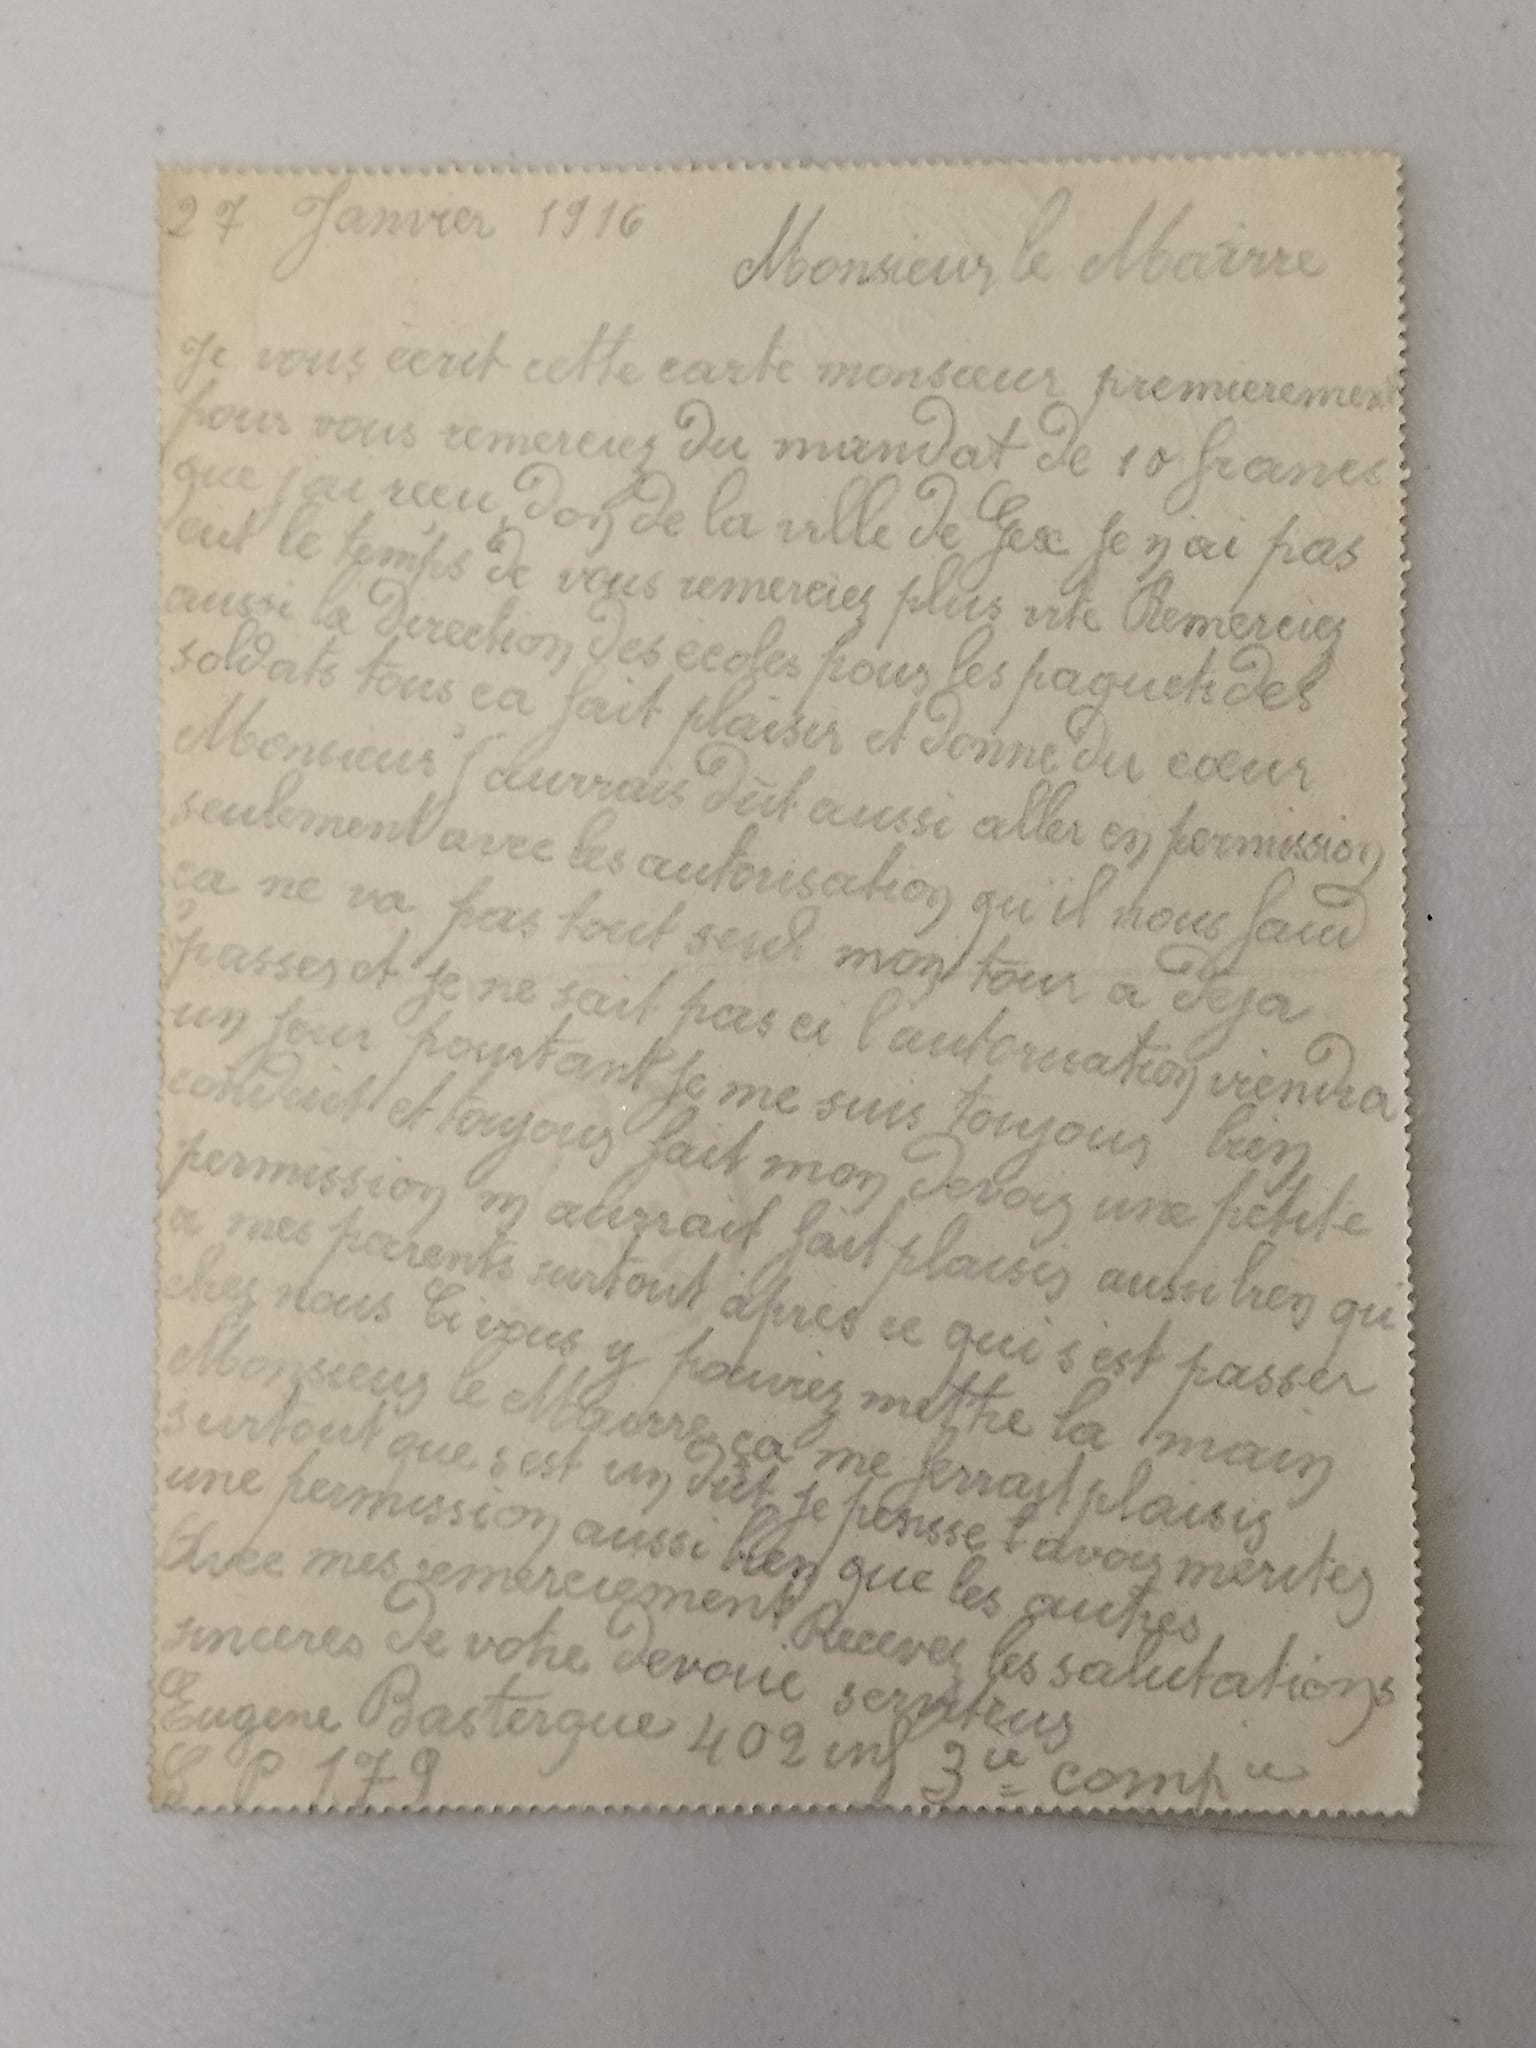 27 Janvier 1916
Monsieur le Mairre
Je vous écrit cette carte monsieur premierement
pour vous remerciez du mandat de 10 francs
que j'ai recu don de la ville de Gex Je n ai pas
eut le temps de vous remerciez plus vite Remerciez
aussi la direction des ecoles pour les paquets des
soldats tous ca fait plaisir et donne du cœur
Monsieur j'aurrais dût aussi aller en permission
seulement avec les autorisation qu'il nous faud
ça ne va pas tout seul mon tour a deja
passer et je ne sait pas ci l'autorisation viendra
un jour pourtant Je me suis toujour bien
conduit et toujour fait mon devoir une petite
permission m aurrait fait plaisir aussi bien qu
a mes parents surtout après ce qui s est passer
chez nous Ci vous y pouviez mettre la main
Monsieur le Mairre ça me ferrait plaisir
surtout que s est un dût je pensse l avoir meritez
une permission aussi bien que les autres
Avec mes remerciement Recevez les salutations
sinceres de votre devoué serviteur
Eugene Bastergue 402 inf 3ie compie
S P 179